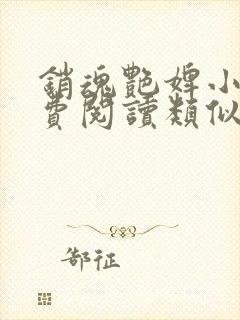 銷魂艷婢小
費閱讀類似
郜征